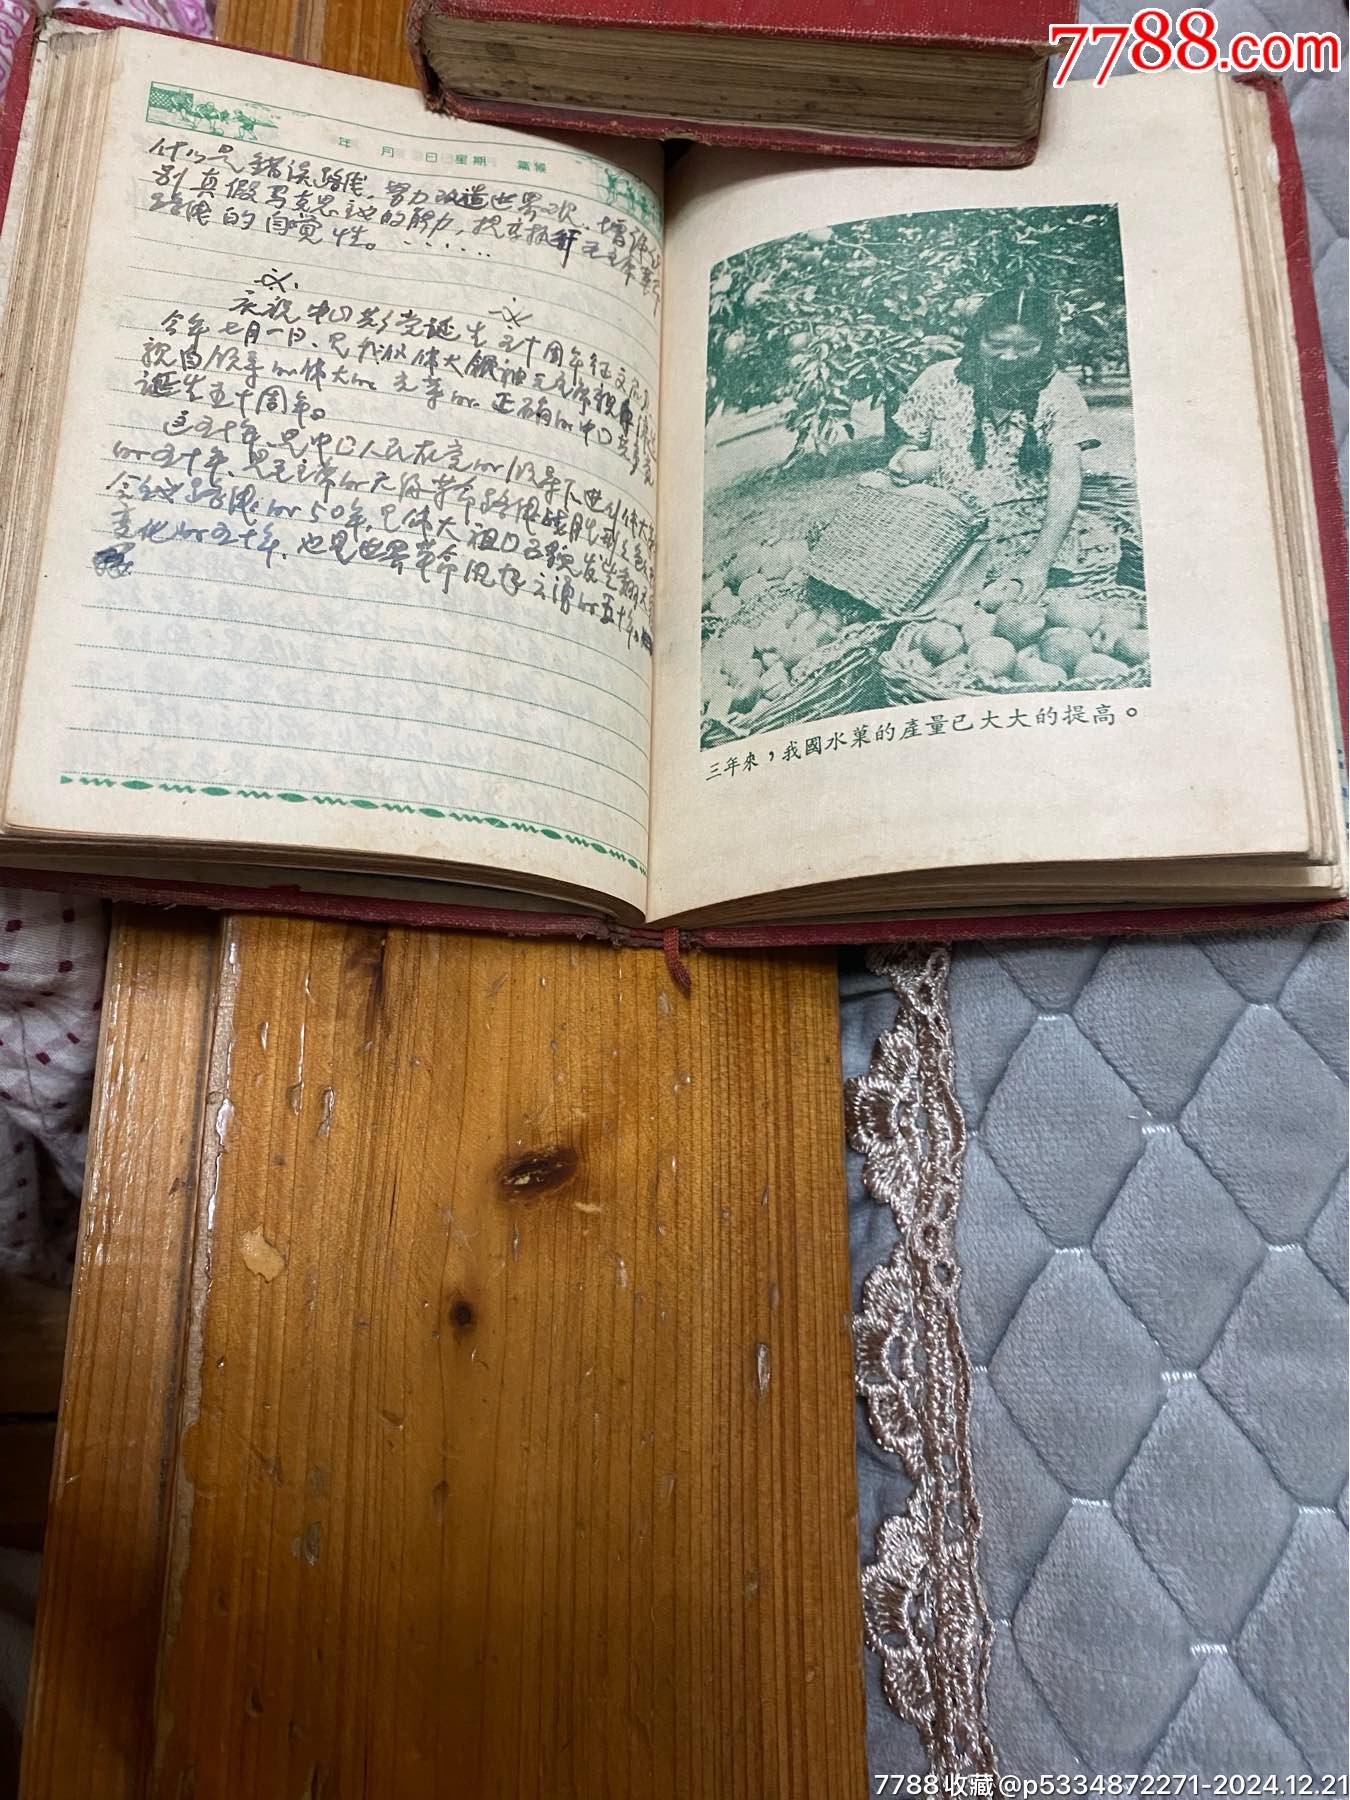 7788.com
年 月 日 星期 氣候
什么是错误路线，努力改造世界观，增强识
别真假马克思主义的能力，提高执行毛主席革命
路线的自觉性。……
庆祝中国共产党诞生五十周年征文
今年七月一日，是我们伟大领袖毛主席
亲自领导的伟大的、光荣的、正确的中国共产党
诞生五十周年。
这五十年，是中国人民在党的领导下进行伟大
的五十年，是毛主席的无产革命路线战胜
路线的50年，是伟大祖国发生翻天
变化的五十年，也是世界革命风起云涌的五十年。
三年來，我國水菓的產量已大大的提高。
7788收藏@p5334872271-2024.12.21